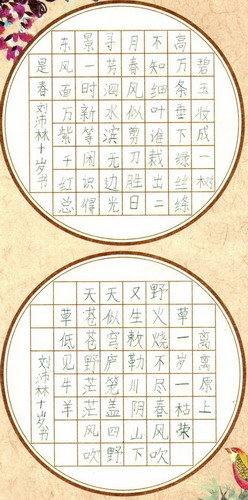 碧玉妆成一树
高万条垂下绿丝绦
不知细叶谁裁出二
月春风似剪刀胜日
寻芳泗水滨无边光
景一时新等闲识得
东风面万紫千红总
是春
刘沛林十岁书
离离原上
草一岁一枯荣
野火烧不尽春风吹
又生敕勒川阴山下
天似穹庐笼盖四野
天苍苍野茫茫风吹
草低见牛羊
刘沛林十岁书